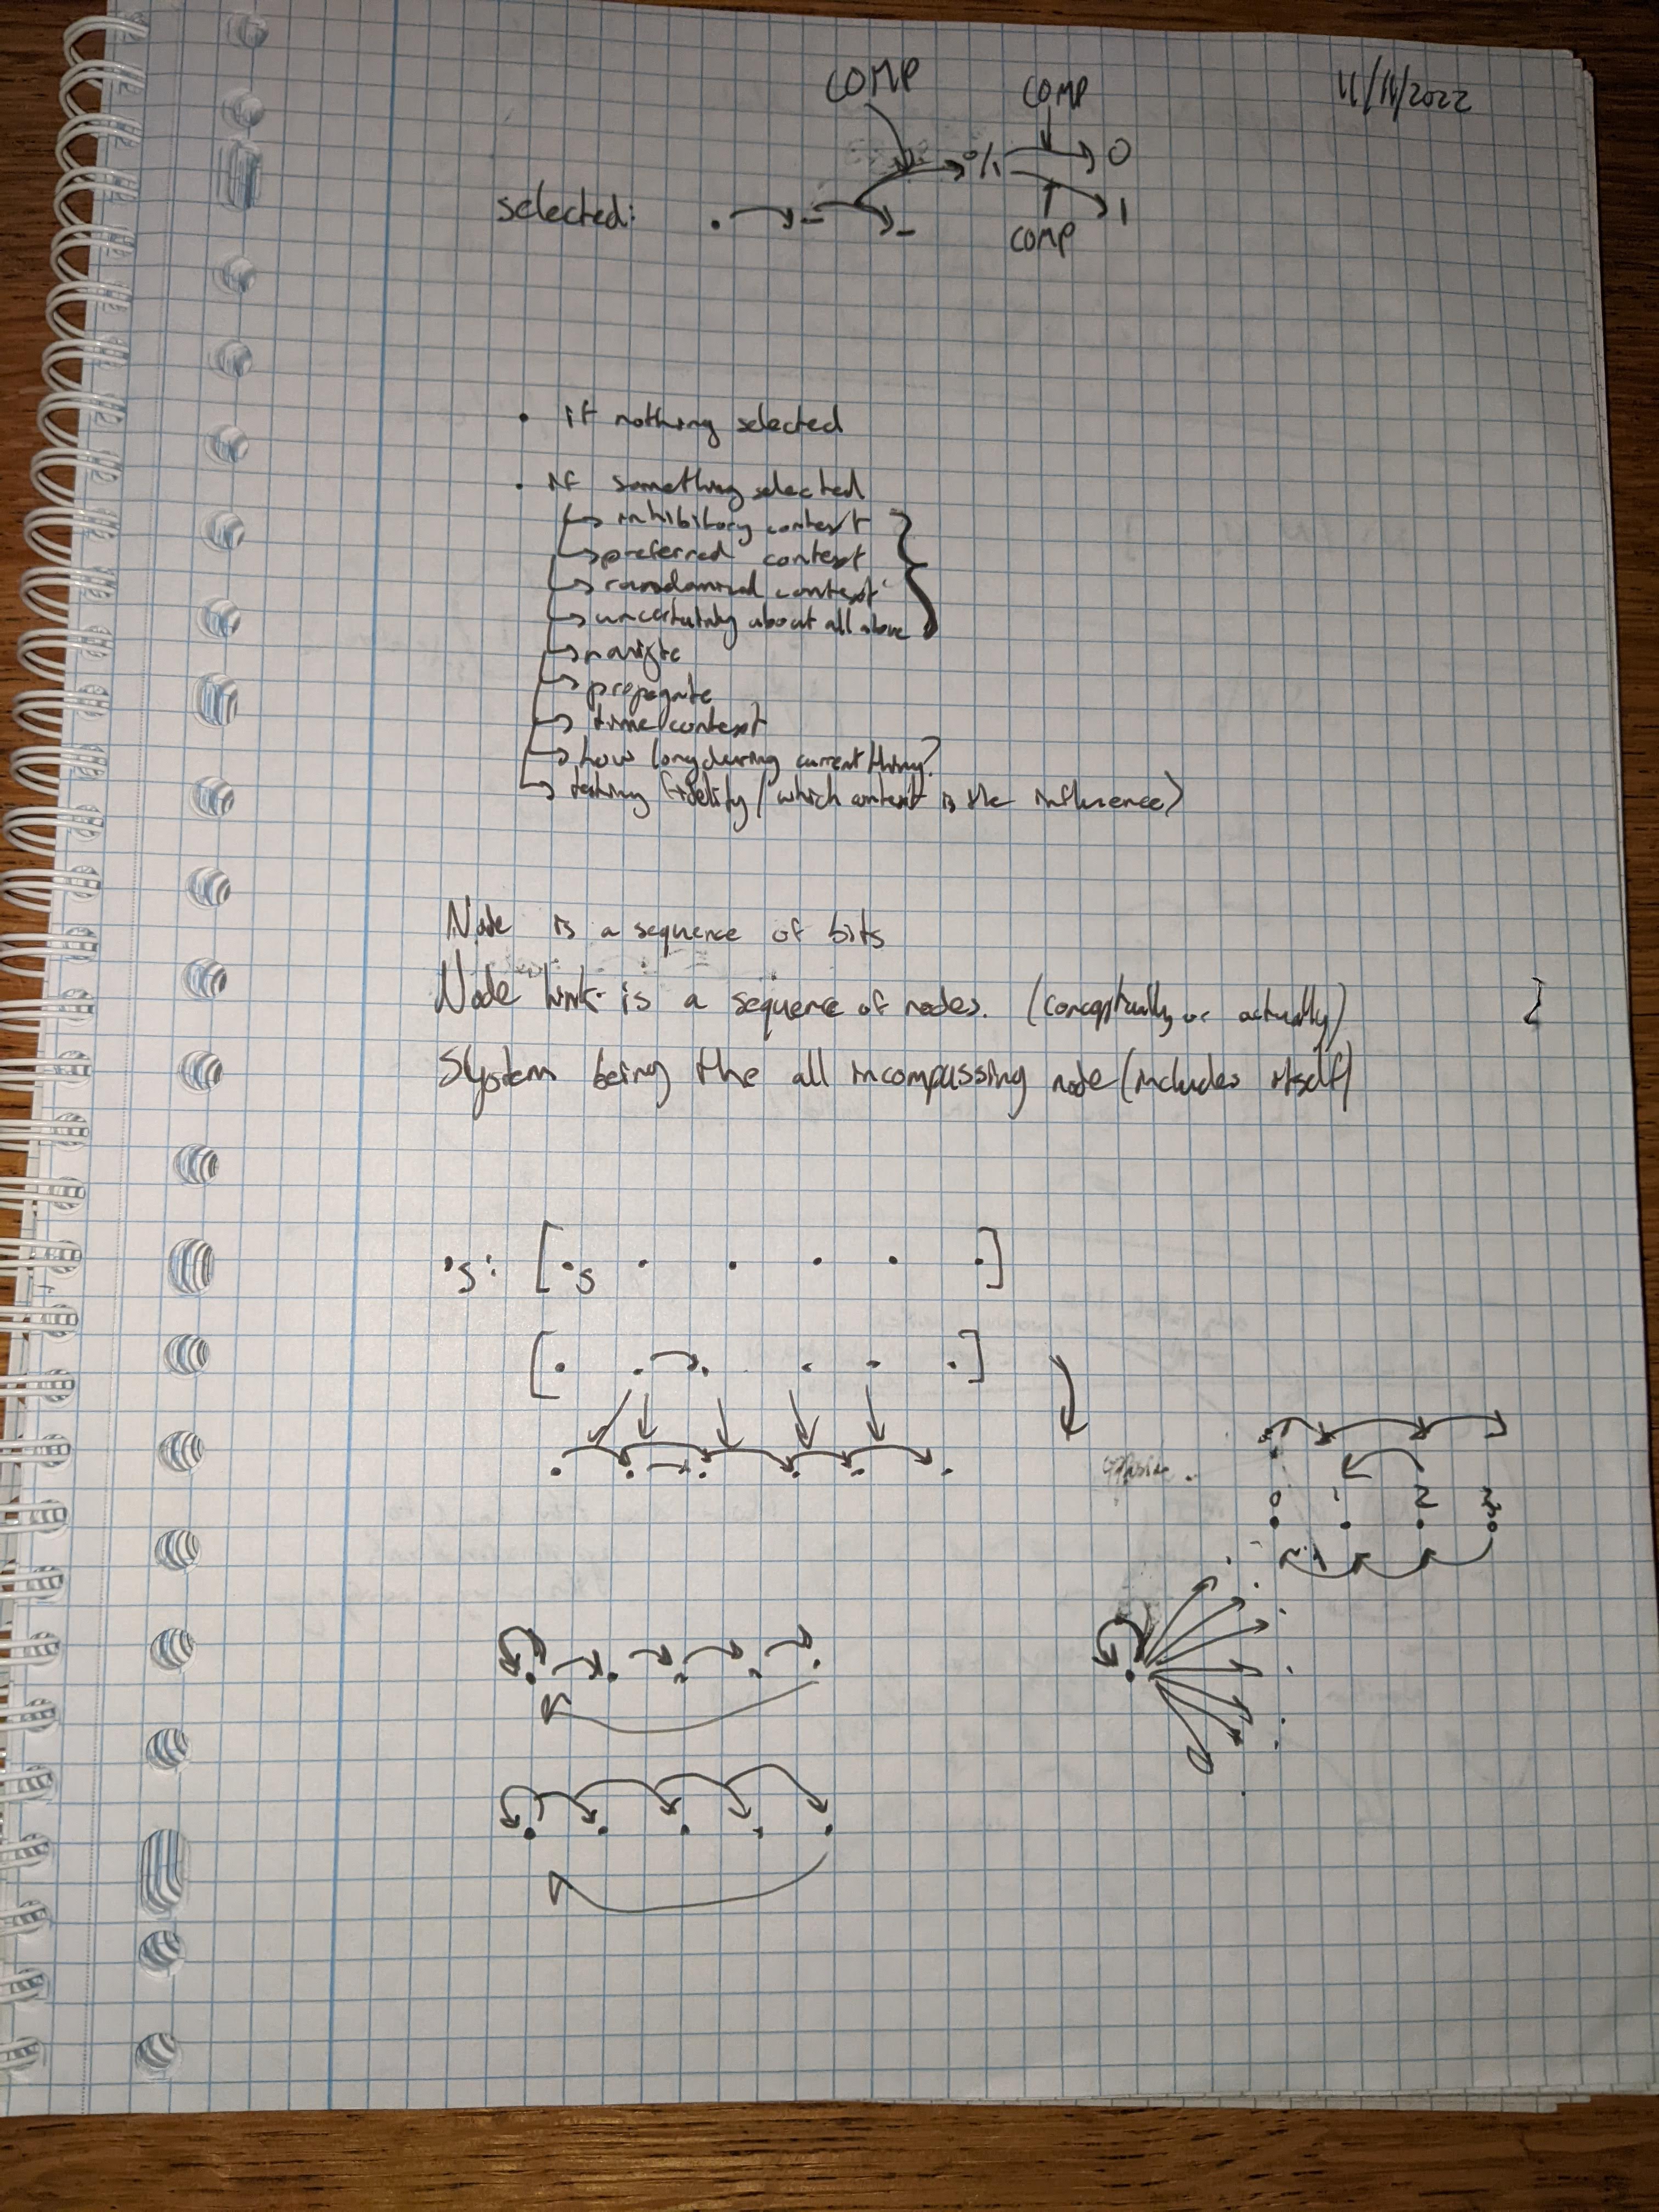 11/11/2022
COMP
COMP
0/1
0
selected: . - -
1
COMP
• if nothing selected
• if something selected
inhibitory context
preferred context
randomized context
uncertainty about all above
navigate
propagate
time context
how long during current thing?
fidelity (which context is the influence)
Node is a sequence of bits
Node link is a sequence of nodes. (conceptually or actually)
System being the all incompassing node (includes itself)
•s: [•s . . . . .]
[. . . . . .]
0 1 2 3